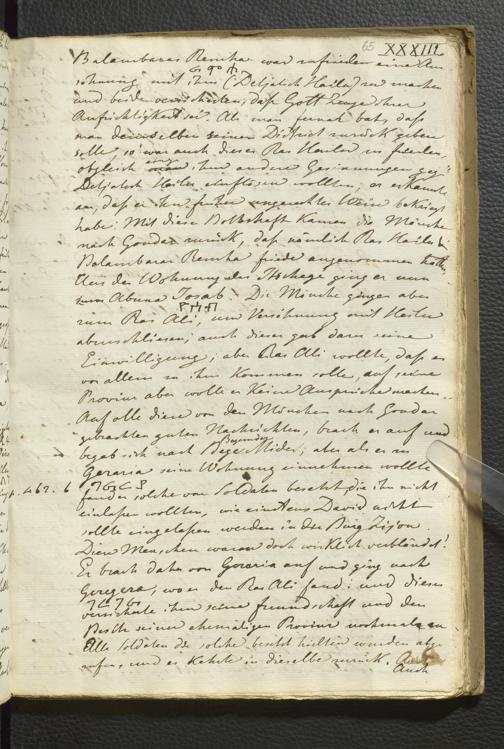 65 XXXIII
Balambaras Remha war zufrieden eine Aus
söhnung mit ihm (Detjatsch Hailu) zu machen
und beide versicherten, daß Gott Zeuge ihrer
Aufrichtigkeit sei. Als man fernah bat, daß
man demselben seinen District zurück geben
solle so war auch dieser Ras Hailu zufrieden,
obgleich einige ihm andere Gesinnungen geg
Detjatsch Hailu einflößen wollten; er erkannte
an, daß er ihn früher ungerechter Weise bekriegt
habe. Mit diese Bothschaft kamen die Mönche
nach Gondar zurück, daß nämlich Ras Hailu u
Balambaras Remha friede angenommen hatten
Aus der Wohnung des Itschage ging er nun
zum Abuna Josab. Die Mönche gingen aber
zum Ras Ali, um Versöhnung mit Hailu
abzuschliessen; auch dieser gab dazu seine
Einwilligung; aber Ras Ali wollte, daß er
vor allem zu ihm kommen solle, auf seine
Provinz aber wolle er keine Ansprüche machen.
Auf alle diese von den Mönchen nach Gondar
gebrachten guten Nachrichten, brach er auf und
begab sich nach Begemider; aber als er in
Geraria seine Wohnung einnehmen wollte
fand er solche von Soldaten besetzt, die ihn nicht
einlaßen wollten, wie einstens David nicht
sollte eingelaßen werden in der Burg Zijon.
Diese Menschen waren doch wirklich verbländet!
Er brach daher von Geraria auf und ging nach
Geregera, wo er den Ras Ali fand; und dieser
versicherte ihm seine freundschaft und den
Besitz seiner ehemaligen Provinz nochmals zu
Alle Soldaten die solche besetzt hielten wurden abge
rufen, und er kehrte in dieselbe zurück. Auch